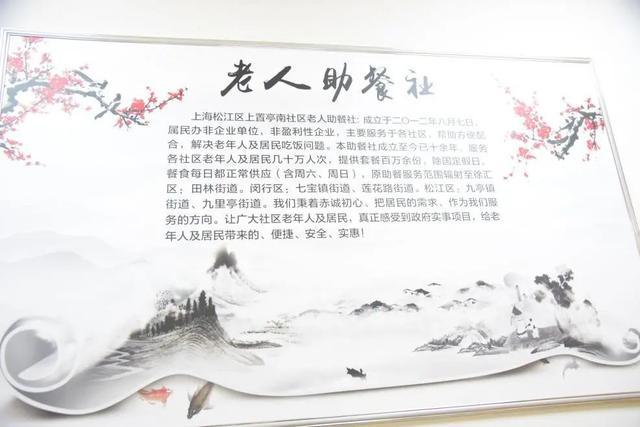 老人助餐社
上海松江区上置亭南社区老人助餐社:成立于二〇一二年八月七日,
属民办非企业单位,非盈利性企业,主要服务于各社区,帮助方便配
合,解决老年人及居民吃饭问题。本助餐社成立至今已十余年,服务
各社区老年人及居民几十万人次,提供套餐百万余份,除国定假日,
餐食每日都正常供应(含周六、周日),原助餐服务范围辐射至徐汇
区:田林街道。闵行区:七宝镇街道、莲花路街道。松江区:九亭镇
街道、九里亭街道。我们秉着赤诚初心、把居民的需求、作为我们服
务的方向。让广大社区老年人及居民,真正感受到政府实事项目,给老
年人及居民带来的、便捷、安全、实惠!